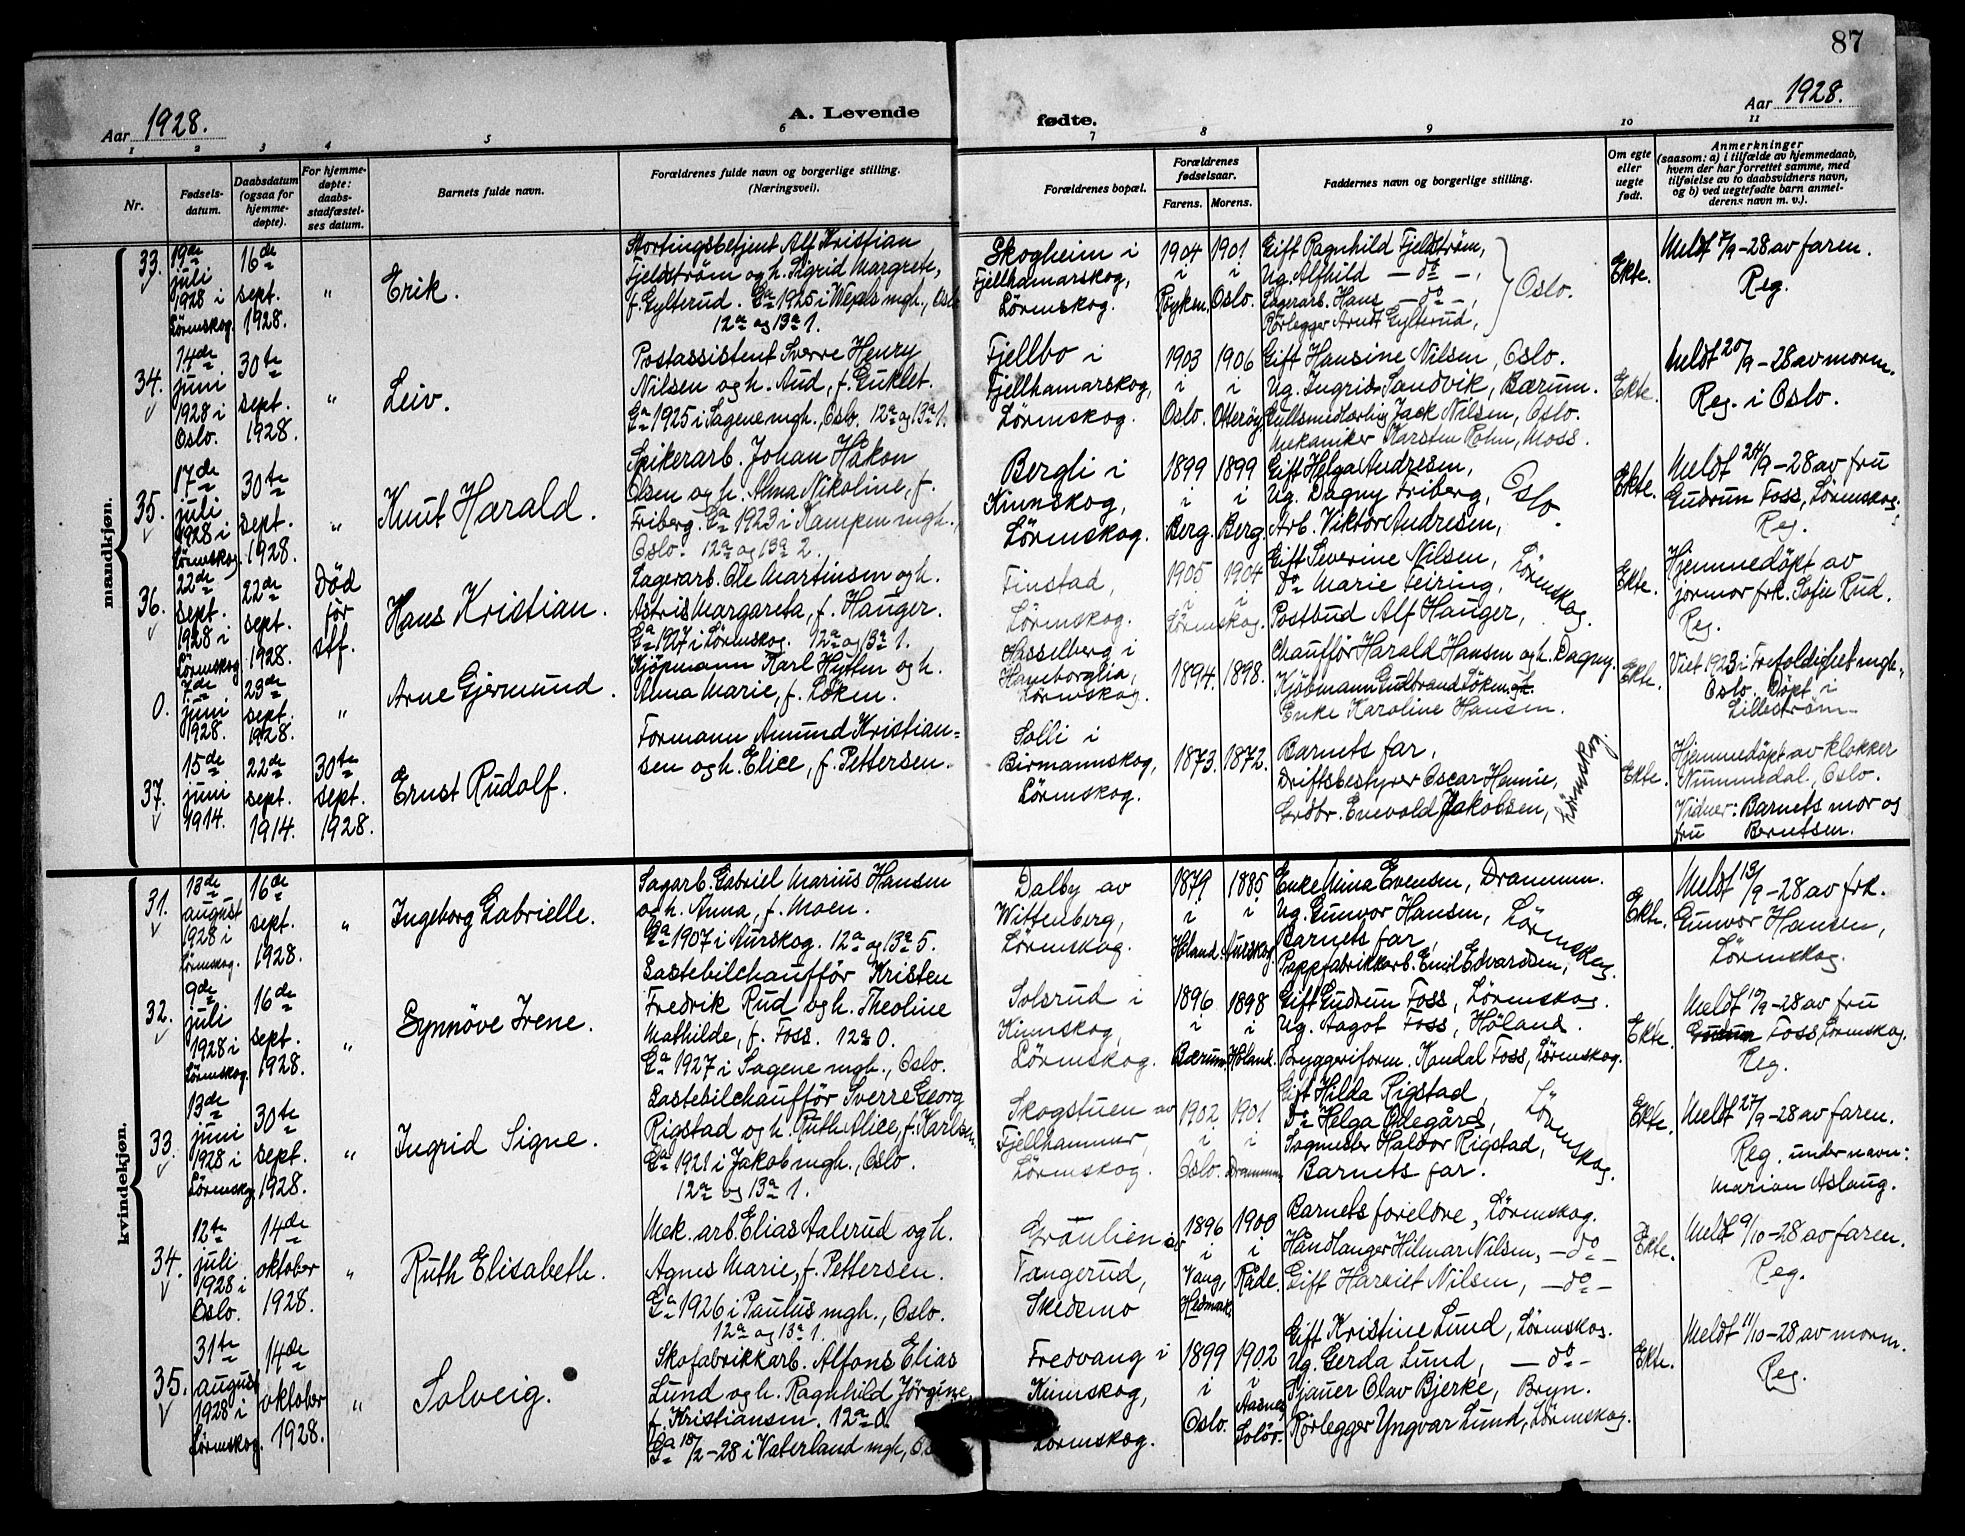 87
Aar 1928.
A. Levende
fødte.
Aar 1928.
1 2 3 4 5 6 7 8 9 10 11
Nr.
Fødsels-
datum.
Daabsdatum
(ogsaa for
hjemme-
døpte).
For hjemme-
døpte:
daabs-
stadfæstel-
ses datum.
Barnets fulde navn.
Forældrenes fulde navn og borgerlige stilling.
(Næringsvei).
Forældrenes bopæl.
Forældrenes
fødselsaar.
Farens. Morens.
Faddernes navn og borgerlige stilling.
Om egte
eller
uegte
født.
Anmerkninger
(saasom: a) i tilfælde av hjemmedaab,
hvem der har forrettet samme, med
tilføielse av to daabsvidners navn,
og b) ved uegtefødte barn anmel-
derens navn m. v.).
mandkjøn.
33.
19de
juli
1928 i
Lørenskog.
16de
sept.
1928.
"
Erik.
Stortingsbetjent Alf Kristian
Fjeldstrøm og h. Sigrid Margrete,
f. Gylterud. Ga 1925 i Wexels mgh., Oslo
12a og 13a 1.
Skogheim i
Fjellhamarskog,
Lørenskog.
1904
i
Røyken.
1901
i
Oslo.
Gift Ragnhild Fjeldstrøm,
Ug. Alfhild — do —,
Lagerarb. Hans — do —,
Rørlegger Arndt Gylterud,
Oslo.
Ekte.
Meldt 7/9-28 av faren.
Reg.
34.
14de
juni
1928 i
Oslo.
30te
sept.
1928.
"
Leiv.
Postassistent Sverre Henry
Nilsen og h. Aud, f. Guklet.
Ga 1925 i Sagene mgh., Oslo. 12a og 13a 1.
Fjellbo i
Fjellhamarskog,
Lørenskog.
1903
i
Oslo.
1906
i
Otterøy.
Gift Hansine Nilsen, Oslo.
Ug. Ingrid Sandvik, Bærum.
Gullsmedlærling Jack Nilsen, Oslo.
Mekaniker Karsten Rohn, Moss.
Ekte.
Meldt 20/9-28 av moren.
Reg. i Oslo.
35.
17de
juli
1928 i
Lørenskog.
30te
sept.
1928.
"
Knut Harald.
Spikerarb. Johan Håkon
Olsen og h. Alma Nikoline, f.
Friberg. Ga 1923 i Kampen mgh.,
Oslo. 12a og 13a 2.
Bergli i
Kinnskog,
Lørenskog.
1899
i
Berg.
1899
i
Berg.
Gift Helga Andresen,
Ug. Dagny Friberg,
Arb. Viktor Andresen,
Oslo.
Ekte.
Meldt 24/9-28 av fru
Gudrun Foss, Lørenskog.
Reg.
36.
22de
sept.
1928 i
Lørenskog
22de
sept.
1928.
Død
før
stf.
Hans Kristian.
Lagerarb. Ole Martinsen og h.
Astris Margareta, f. Hauger.
Ga 1927 i Lørenskog. 12a og 13a 1.
Finstad,
Lørenskog.
1905 1904
i i
Lørenskog.
Gift Severine Nilsen,
Do Marie Feiring,
Postbud Alf Hauger,
Lørenskog.
Ekte.
Hjemmedøpt av
jormor frk. Sofie Rud.
Reg.
0.
7de
juni
1928.
23de
sept.
1928.
"
Arne Gjermund.
Kjøpmann Karl Hytten og h.
Anna Marie, f. Løken.
Hasselberg i
Hamborglia,
Lørenskog.
1894. 1898.
Chauffør Harald Hansen og h. Dagny.
Kjøbmann Gudbrand Løken og h.
Enke Karoline Hansen.
Ekte.
Viet 1923 i Trefoldighet mgh.,
Oslo. Døpt i
Lillestrøm-
37.
15de
juni
1914.
22de
sept.
1914.
30te
sept.
1928.
Ernst Rudolf.
Formann Amund Kristian=
sen og h. Elice, f. Pettersen.
Solli i
Birmannskog,
Lørenskog.
1873. 1872.
Barnets far,
Driftsbestyrer Oscar Hennie,
Grdbr. Enevold Jakobsen,
Lørenskog.
Ekte.
Hjemmedøpt av klokker
Nummedal, Oslo.
Vidner: Barnets mor og
fru Berntsen.
kvindekjøn.
31.
13de
august
1928 i
Lørenskog.
16de
sept.
1928.
"
Ingeborg Gabrielle.
Sagarb. Gabriel Marius Hansen
og h. Anna, f. Moen.
Ga 1907 i Aurskog. 12a og 13a 5.
Dalby av
Wittenberg,
Lørenskog.
1879
i
Høland.
1885
i
Aurskog.
Enke Mina Evensen, Drammen.
Ug. Gunvor Hansen,
Barnets far,
Pappfabrikkarb. Emil Edvardsen,
Lørenskog.
Ekte.
Meldt 13/9-28 av frk.
Gunvor Hansen,
Lørenskog.
32.
9de
juli
1928 i
Lørenskog.
16de
sept.
1928.
"
Synnøve Irene.
Lastebilchauffør Kristen
Fredrik Rud og h. Theoline
Mathilde, f. Foss. 12a 0.
Ga 1927 i Sagene mgh., Oslo.
Solsrud i
Kinnskog,
Lørenskog.
1896
i
Bærum.
1898
i
Høland.
Gift Gudrun Foss, Lørenskog.
Ug. Aagot Foss, Høland.
Bryggeriform. Kandal Foss, Lørenskog.
Ekte.
Meldt 10/9-28 av fru
Gudrun Foss, Lørenskog.
Reg.
33.
13de
juni
1928 i
Lørenskog
30te
sept.
1928.
"
Ingrid Signe.
Lastebilchauffør Sverre Georg
Rigstad og h. Ruth Alice, f. Karlsen.
Ga 1921 i Jakob mgh., Oslo.
12a og 13a 1.
Skogstuen av
Fjellhammer,
Lørenskog.
1902
i
Oslo.
1901
i
Drammen.
Gift Hilda Rigstad,
Do Helga Ødegård,
Sagmester Haldor Rigstad,
Barnets far.
Lørenskog.
Ekte.
Meldt 27/9-28 av faren.
Reg. under navn:
Marian Aslaug.
34.
12te
juli
1928 i
Oslo.
14de
oktober
1928.
"
Ruth Elisabeth.
Mek. arb. Elias Aalerud og h.
Agnes Marie, f. Pettersen.
Ga 1926 i Paulus mgh., Oslo.
12a og 13a 1.
Grønlien av
Tangerud,
Skedsmo
1896
i
Vang,
Hedmark.
1900
i
Råde.
Barnets foreldre, Lørenskog.
Håndlanger Hilmar Nilsen, — do —
Gift Harriet Nilsen, — do —
Ekte.
Meldt 9/10-28 av faren.
Reg.
35.
31te
august
1928 i
Lørenskog.
14de
oktober
1928.
"
Solveig.
Skofabrikkarb. Alfons Elias
Lund og h. Ragnhild Jørgine,
f. Kristiansen. 12a 0.
Ga 18/2-28 i Vaterland mgh.,
Fredvang i
Kinnskog,
Lørenskog.
1899
i
Oslo.
1902
i
Aasnes
Solør.
Gift Kristine Lund, Lørenskog.
Ug. Gerda Lund, — do —
Sjauer Olav Bjerke, Bryn.
Rørlegger Yngvar Lund, Lørenskog.
Ekte.
Meldt 11/10-28 av moren.
Reg.